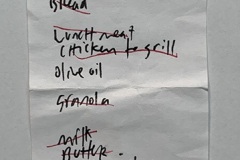 Bread
Lunch meat
Chicken to grill
Olive oil
Granola
Milk
Butter